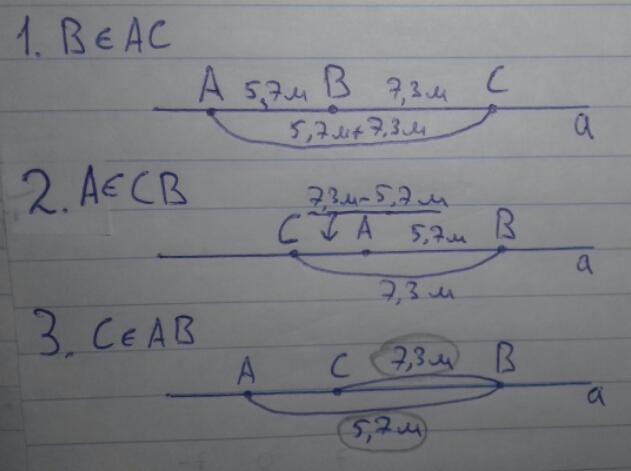 1. B ∈ AC
A 5,7м B 7,3м C
5,7м+7,3м a
2. A ∈ CB
7,3м-5,7м
C ↓ A 5,7м B
7,3м a
3. C ∈ AB
A C 7,3м B
5,7м a